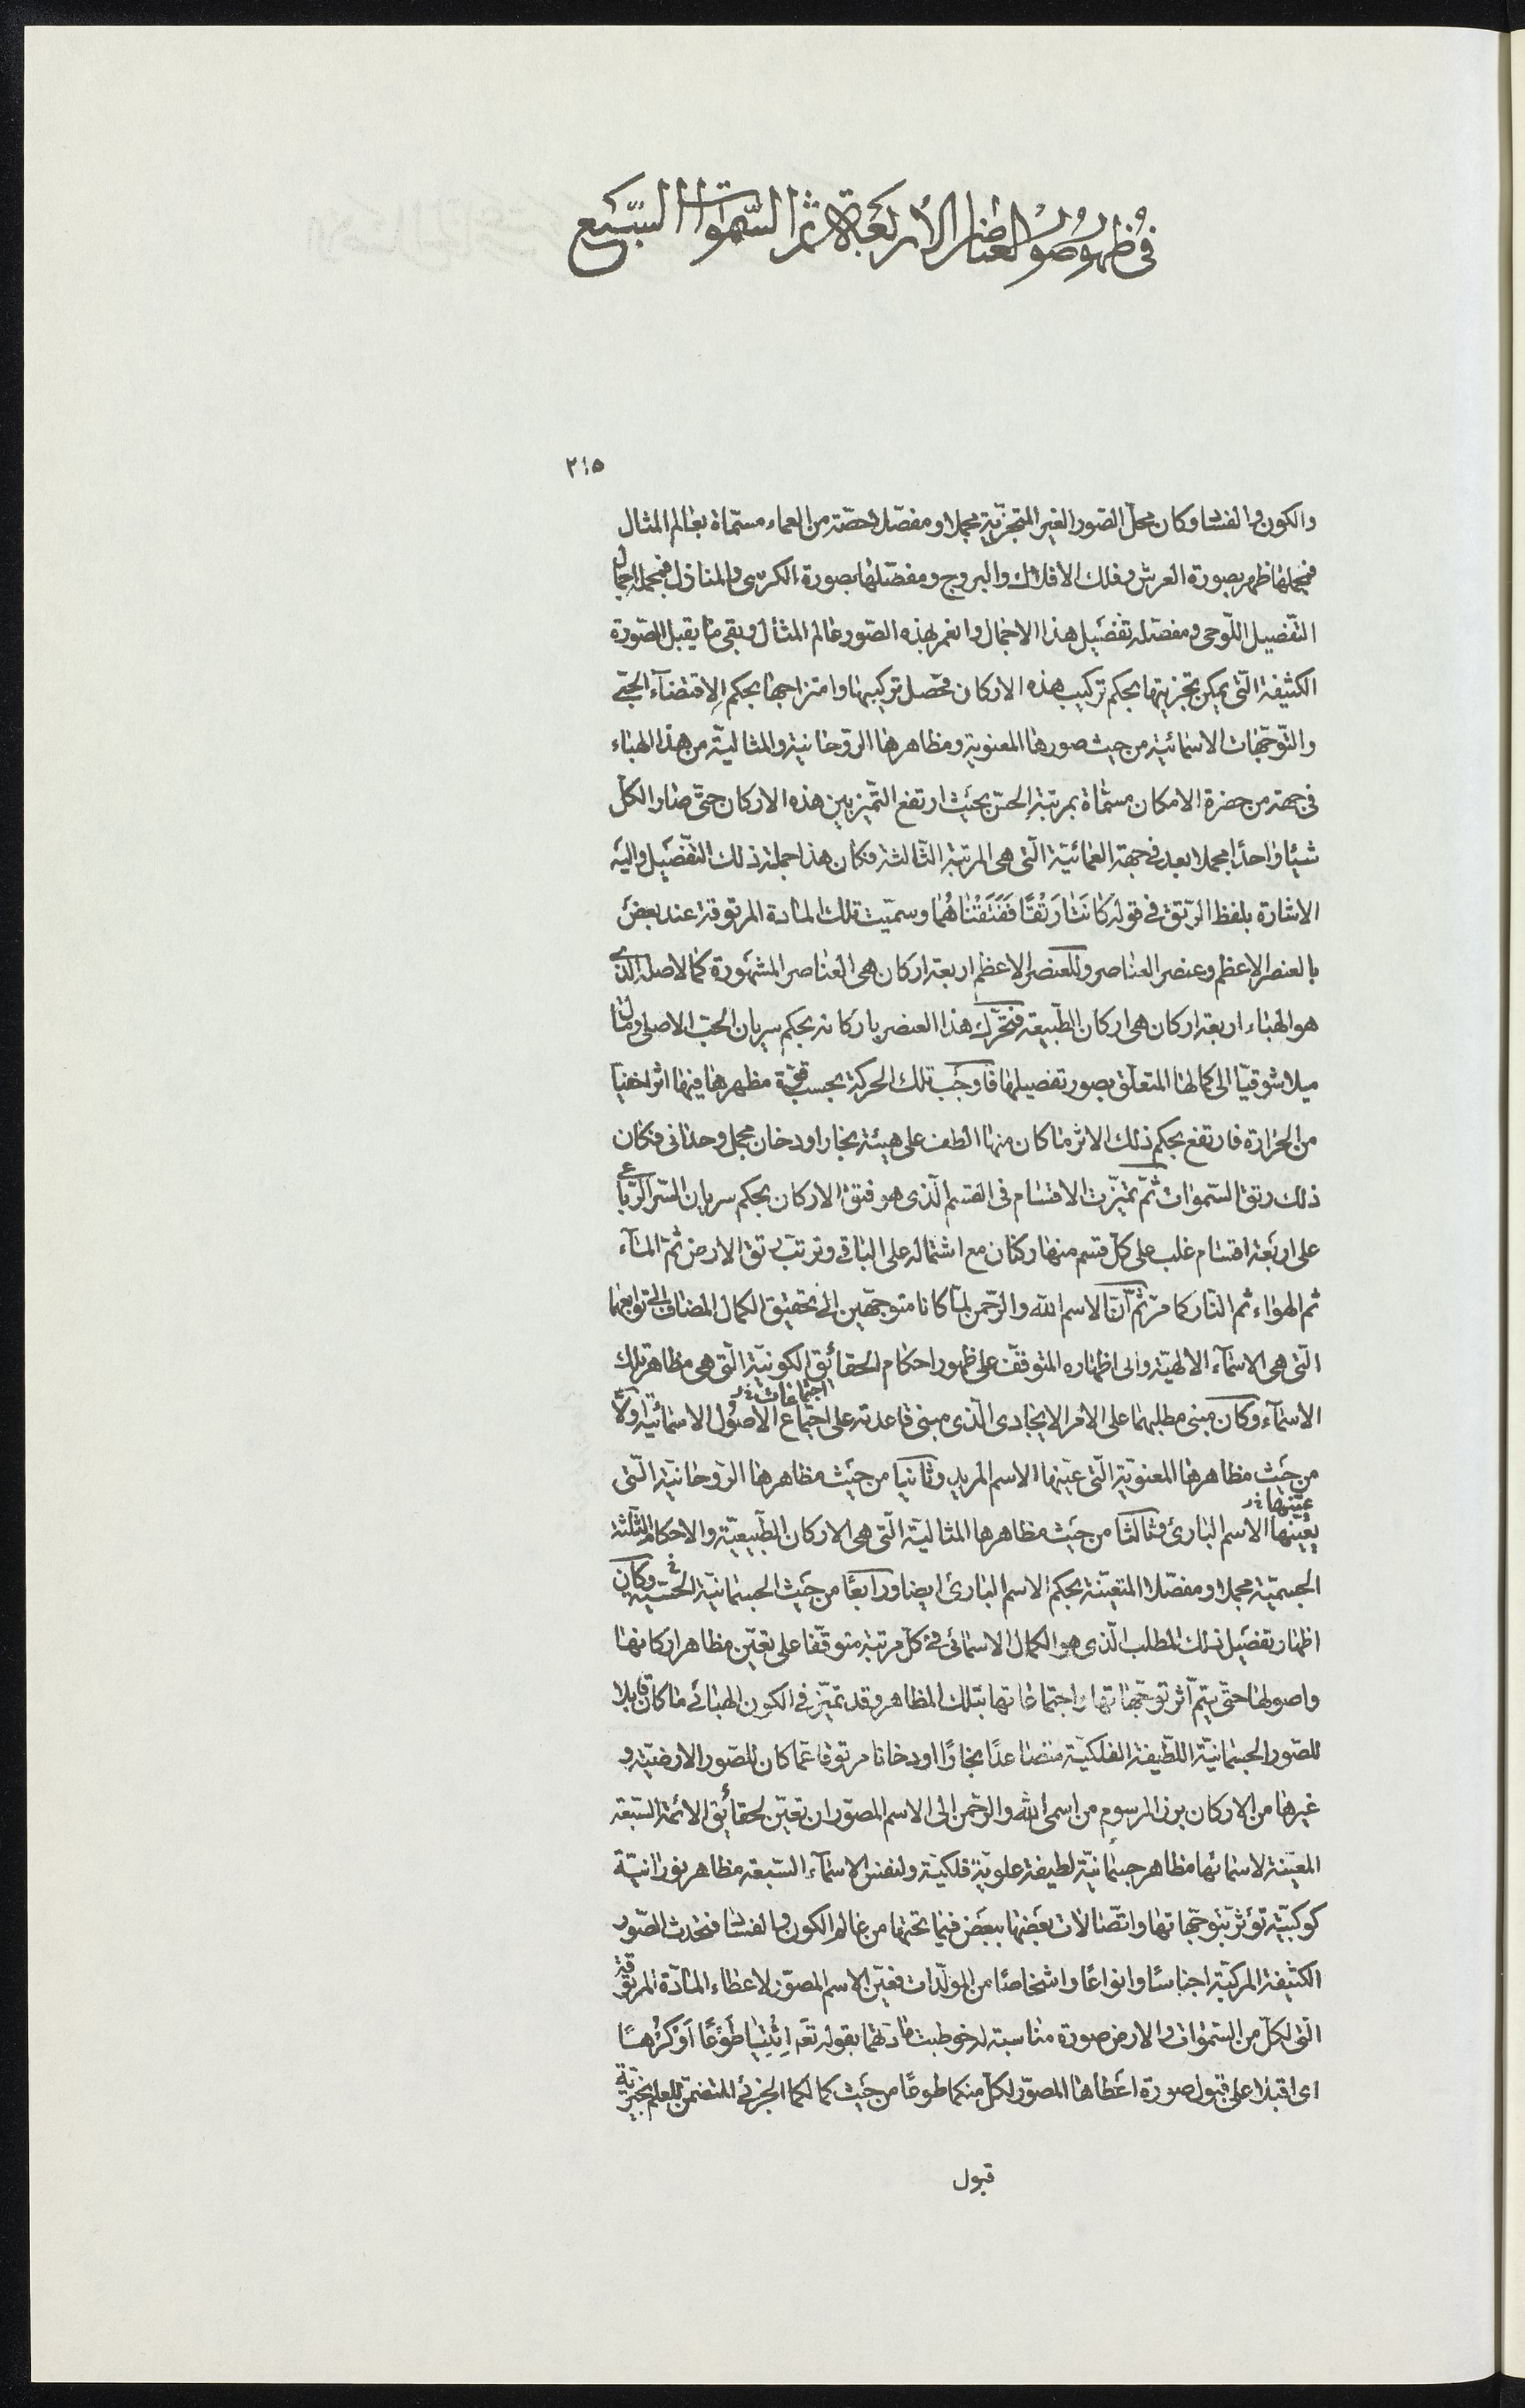 في ظهور صور العناصر الأربعة ثم السموات السبع
٢١٥
والكون والفساد وكان محل الصور الغير المتجزية مجملا ومفصلا حصة من العماء مسماة بعالم المثال
فمجملها ظهر بصورة العرش وفلك الافلاك والبروج ومفصلها بصورة الكرسى والمنازل فمجمله اجمال
التفصيل اللوحى ومفصله تفصيل هذا الاجمال وانغمر بهذه الصور عالم المثال وبقى ما يقبل الصورة
الكثيفة التى يمكن تجزيتها بحكم تركيب هذه الاركان فحصل تركيبها وامتزاجها بحكم الاقتضاء الحبى
والتوجهات الاسمائية من حيث صورها المعنوية ومظاهرها الروحانية والمثالية من هذا الهباء
فى جهة من حضرة الامكان مسماة بمرتبة الحس بحيث ارتفع التميز بين هذه الاركان حتى صار الكل
شيئا واحدا مجملا بعد فى جهة العمائية التى هى المرتبة الثالثة فكان هذا جملة ذلك التفصيل واليه
الاشارة بلفظ الرتق فى قوله كَانَتَا رَتْقًا فَفَتَقْنَاهُمَا وسميت تلك المادة المرتوقة عند بعض
بالعنصر الاعظم وعنصر العناصر وللعنصر الاعظم اربعة اركان هى العناصر المشهورة كما لاصله الذى
هو الهباء اربعة اركان هى اركان الطبيعة فتحرك هذا العنصر باركانه بحكم سريان الحب الاصلى ومال
ميلا شوقيا الى كمالها المتعلق بصور تفصيلها فاوجب تلك الحركة بحسب قوة مظهرها فيها اثرا خفيا
من الحرارة فارتفع بحكم ذلك الاثر ما كان منها الطف على هيئة بخار او دخان مجمل وحدانى فكان
ذلك رتق السموات ثم تميزت الاقسام فى القسم الذى هو فتق الاركان بحكم سريان السر الرباعى
على اربعة اقسام غلب على كل قسم منها ركن مع اشتماله على الباقى وترتب رتق الارض ثم الماء
ثم الهواء ثم النار كما مر ثم ان الاسم الله والرحمن لما كانا متوجهين الى تحقيق الكمال المضاف الى توابعهما
التى هى الاسماء الالهية والى اظهاره المتوقف على ظهور احكام الحقائق الكونية التى هى مظاهر تلك
اجتماعات
الاسماء وكان مبنى مطلبهما على الامر الايجادى الذى مبنى قاعدته على اجتماع الاصول الاسمائية اولا
من حيث مظاهرها المعنوية التى عينها الاسم المريد وثانيا من حيث مظاهرها الروحانية التى
عينها
يعينها الاسم البارئ وثالثا من حيث مظاهرها المثالية التى هى الاركان الطبيعية والاحكام الثلثة
الجسمية مجملا ومفصلا المتعينة بحكم الاسم البارئ ايضا ورابعا من حيث الجسمانية الحسية وكان
اظهار تفصيل ذلك المطلب الذى هو الكمال الاسمائى فى كل مرتبة متوقفا على تعين مظاهر اركانها
واصولها حتى يتم اثر توجهاتها واجتماعاتها بتلك المظاهر وقد تميز فى الكون الهبائى ما كان قابلا
للصور الجسمانية اللطيفة الفلكية متصاعدا بخارًا او دخانا مرتوقا عما كان للصور الارضية و
غيرها من الاركان برز المرسوم من اسمى الله والرحمن الى الاسم المصور ان تعين لحقائق الائمة السبعة
المعينة لاسمائها مظاهر جسمانية لطيفة علوية فلكية ولنفس الاسماء السبعة مظاهر نورانية
كوكبية تؤثر بتوجهاتها واتصالات بعضها ببعض فيما تحتها من عالم الكون والفساد فتحدث الصور
الكثيفة المركبة اجناسًا وانواعًا واشخاصًا من المولدات فعين الاسم المصور لاعطاء المادة المرتوقة
التى لكل من السموات والارض صورة مناسبة له خوطبت مادتهما بقوله تعه اِئْتِيَا طَوْعًا اَوْ كَرْهًا
اى اقبلا على قبول صورة اعطاها المصور لكل منكما طوعًا من حيث كمالكما الجزئى المتضمن للعلم بخيرية
قبول